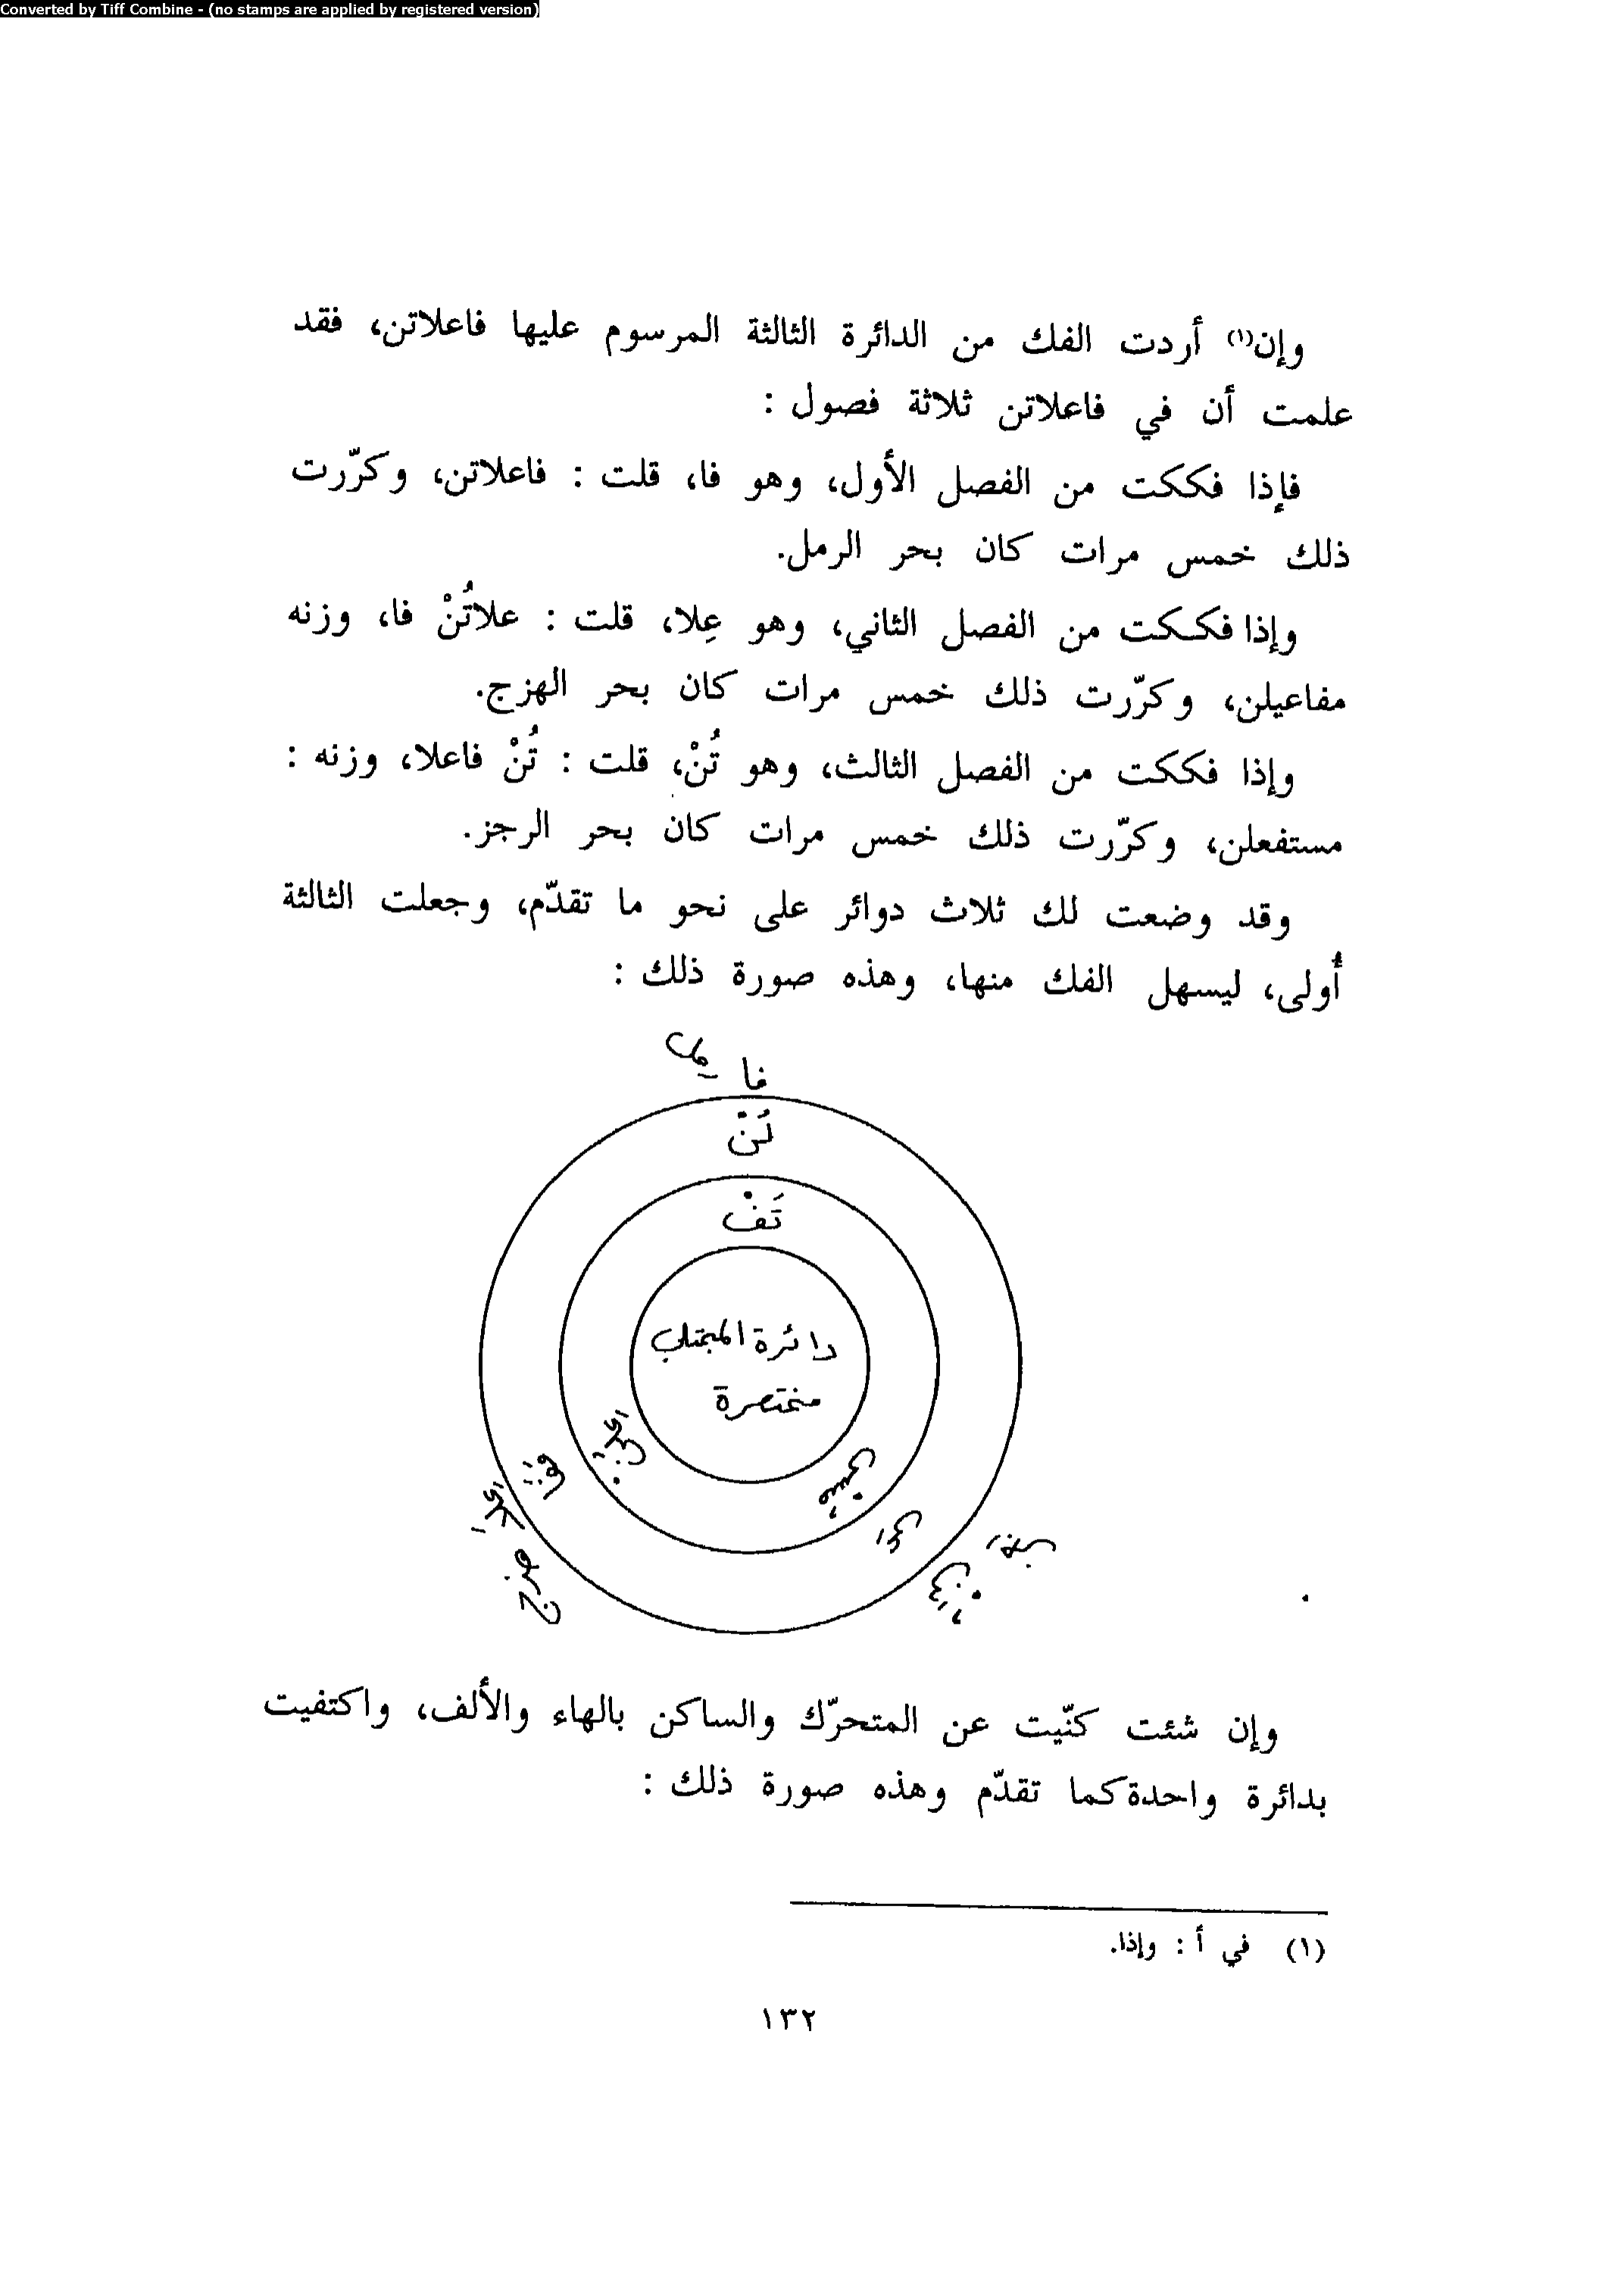 Converted by Tiff Combine - (no stamps are applied by registered version)
وإن(١) أردت الفك من الدائرة الثالثة المرسوم عليها فاعلاتن، فقد
علمت أن في فاعلاتن ثلاثة فصول :
فإذا فككت من الفصل الأول، وهو فا، قلت : فاعلاتن، وكرّرت
ذلك خمس مرات كان بحر الرمل.
وإذا فككت من الفصل الثاني، وهو عِلا، قلت : علاتُنْ فا، وزنه
مفاعيلن، وكرّرت ذلك خمس مرات كان بحر الهزج.
وإذا فككت من الفصل الثالث، وهو تُنْ، قلت : تُنْ فاعلا، وزنه :
مستفعلن، وكرّرت ذلك خمس مرات كان بحر الرجز.
وقد وضعت لك ثلاث دوائر على نحو ما تقدّم، وجعلت الثالثة
أُولى، ليسهل الفك منها، وهذه صورة ذلك :
فا
لُنْ
تَفْ
دائرة المجتلب
مختصرة
وإن شئت كنّيت عن المتحرّك والساكن بالهاء والألف، واكتفيت
بدائرة واحدة كما تقدّم وهذه صورة ذلك :
(١) في أ : وإذا.
١٣٢